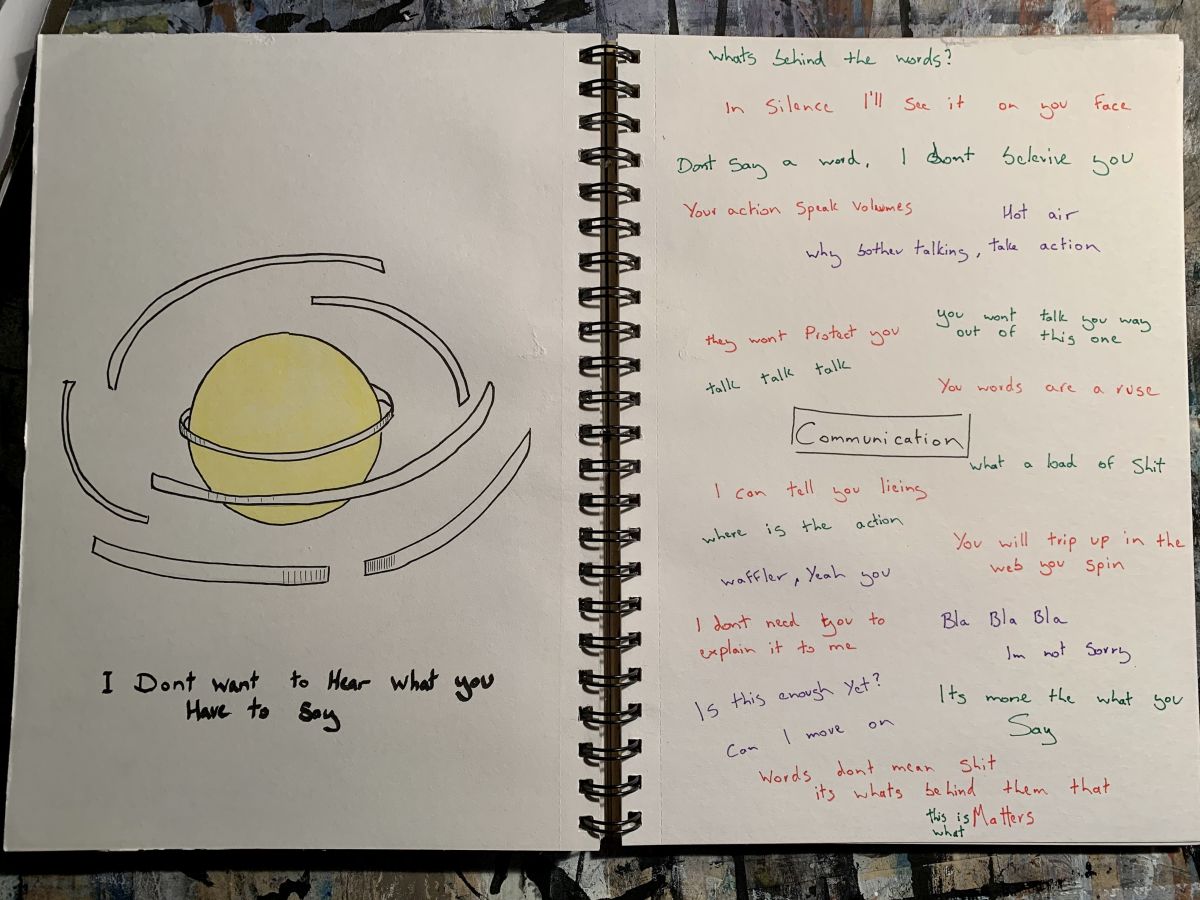 I Dont want to Hear what you
Have to Say
whats behind the words?
In Silence I'll See it on you Face
Dont Say a word, I dont belevive you
Your action Speak Volumes
Hot air
why bother talking, take action
they wont Protect you
you wont talk you way
out of this one
talk talk talk
You words are a ruse
Communication
what a load of Shit
I can tell you lieing
where is the action
You will trip up in the
web you spin
waffler, Yeah you
I dont need you to
explain it to me
Bla Bla Bla
Im not Sorry
Is this enough Yet?
Its more the what you
Say
Can I move on
Words dont mean Shit
its whats behind them that
this is Matters
what